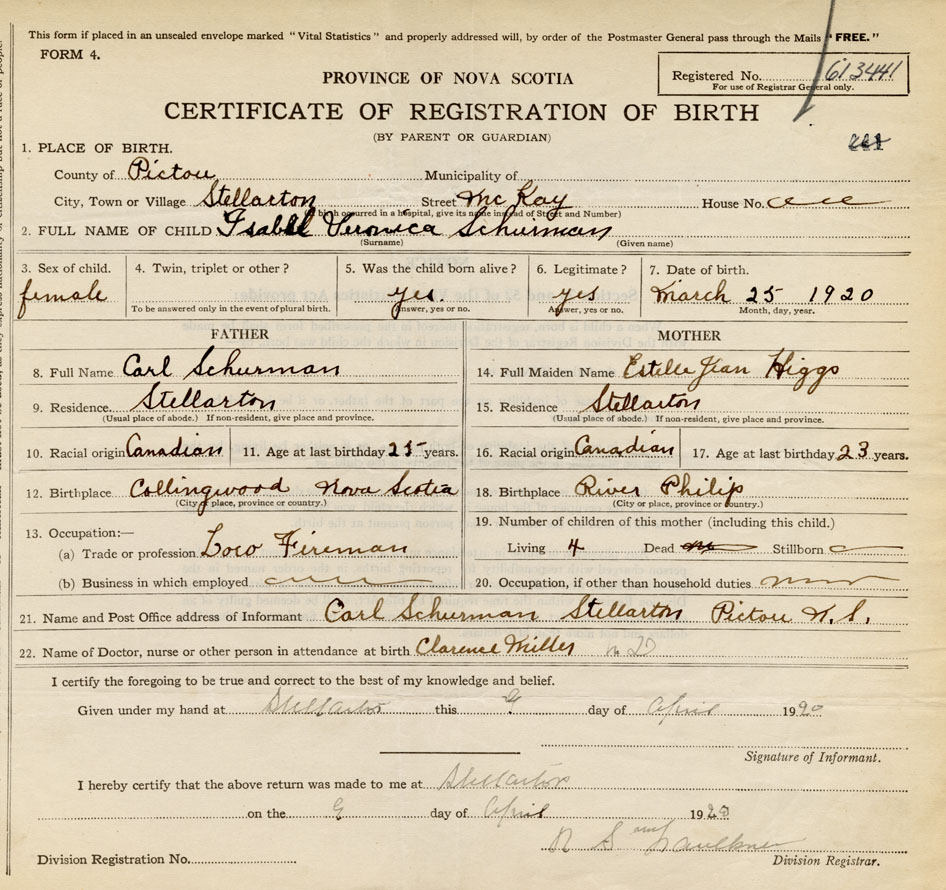 This form if placed in an unsealed envelope marked "Vital Statistics" and properly addressed will, by order of the Postmaster General pass through the Mails "FREE."
FORM 4.
PROVINCE OF NOVA SCOTIA
Registered No. 613441
For use of Registrar General only.
CERTIFICATE OF REGISTRATION OF BIRTH
(BY PARENT OR GUARDIAN)
1. PLACE OF BIRTH.
County of Pictou Municipality of
City, Town or Village Stellarton Street McKay House No.
(If birth occurred in a hospital, give its name instead of Street and Number)
2. FULL NAME OF CHILD Isabel Veronica Schurman
(Surname) (Given name)
3. Sex of child. 4. Twin, triplet or other? 5. Was the child born alive? 6. Legitimate? 7. Date of birth.
female yes. yes March 25 1920
To be answered only in the event of plural birth. Answer, yes or no. Answer, yes or no. Month, day, year.
FATHER MOTHER
8. Full Name Carl Schurman 14. Full Maiden Name Estelle Jean Higgs
9. Residence. Stellarton 15. Residence Stellarton
(Usual place of abode.) If non-resident, give place and province. (Usual place of abode.) If non-resident, give place and province.
10. Racial origin Canadian 11. Age at last birthday 25 years. 16. Racial origin Canadian 17. Age at last birthday 23 years.
12. Birthplace Collingwood Nova Scotia 18. Birthplace River Philip
(City or place, province or country.) (City or place, province or country.)
13. Occupation:— 19. Number of children of this mother (including this child.)
(a) Trade or profession Loco Fireman Living 4 Dead Stillborn
(b) Business in which employed 20. Occupation, if other than household duties
21. Name and Post Office address of Informant Carl Schurman Stellarton Pictou N.S.
22. Name of Doctor, nurse or other person in attendance at birth Clarence Miller M D
I certify the foregoing to be true and correct to the best of my knowledge and belief.
Given under my hand at Stellarton this 9 day of April 1920
Signature of Informant.
I hereby certify that the above return was made to me at Stellarton
on the 9 day of April 1920
Faulkner
Division Registration No. Division Registrar.